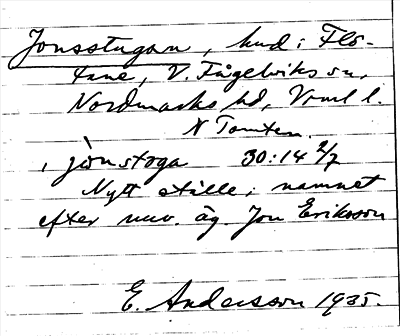 Jonsstugan, hmd i Flö-
tane, V. Fågelviks sn,
Nordmarks hd, Vrml l.
N Tomten.
, jònstoga 30:14 2/7
Nytt ställe; namnet
efter nuv. äg. Jon Eriksson
E. Andersson 1935.